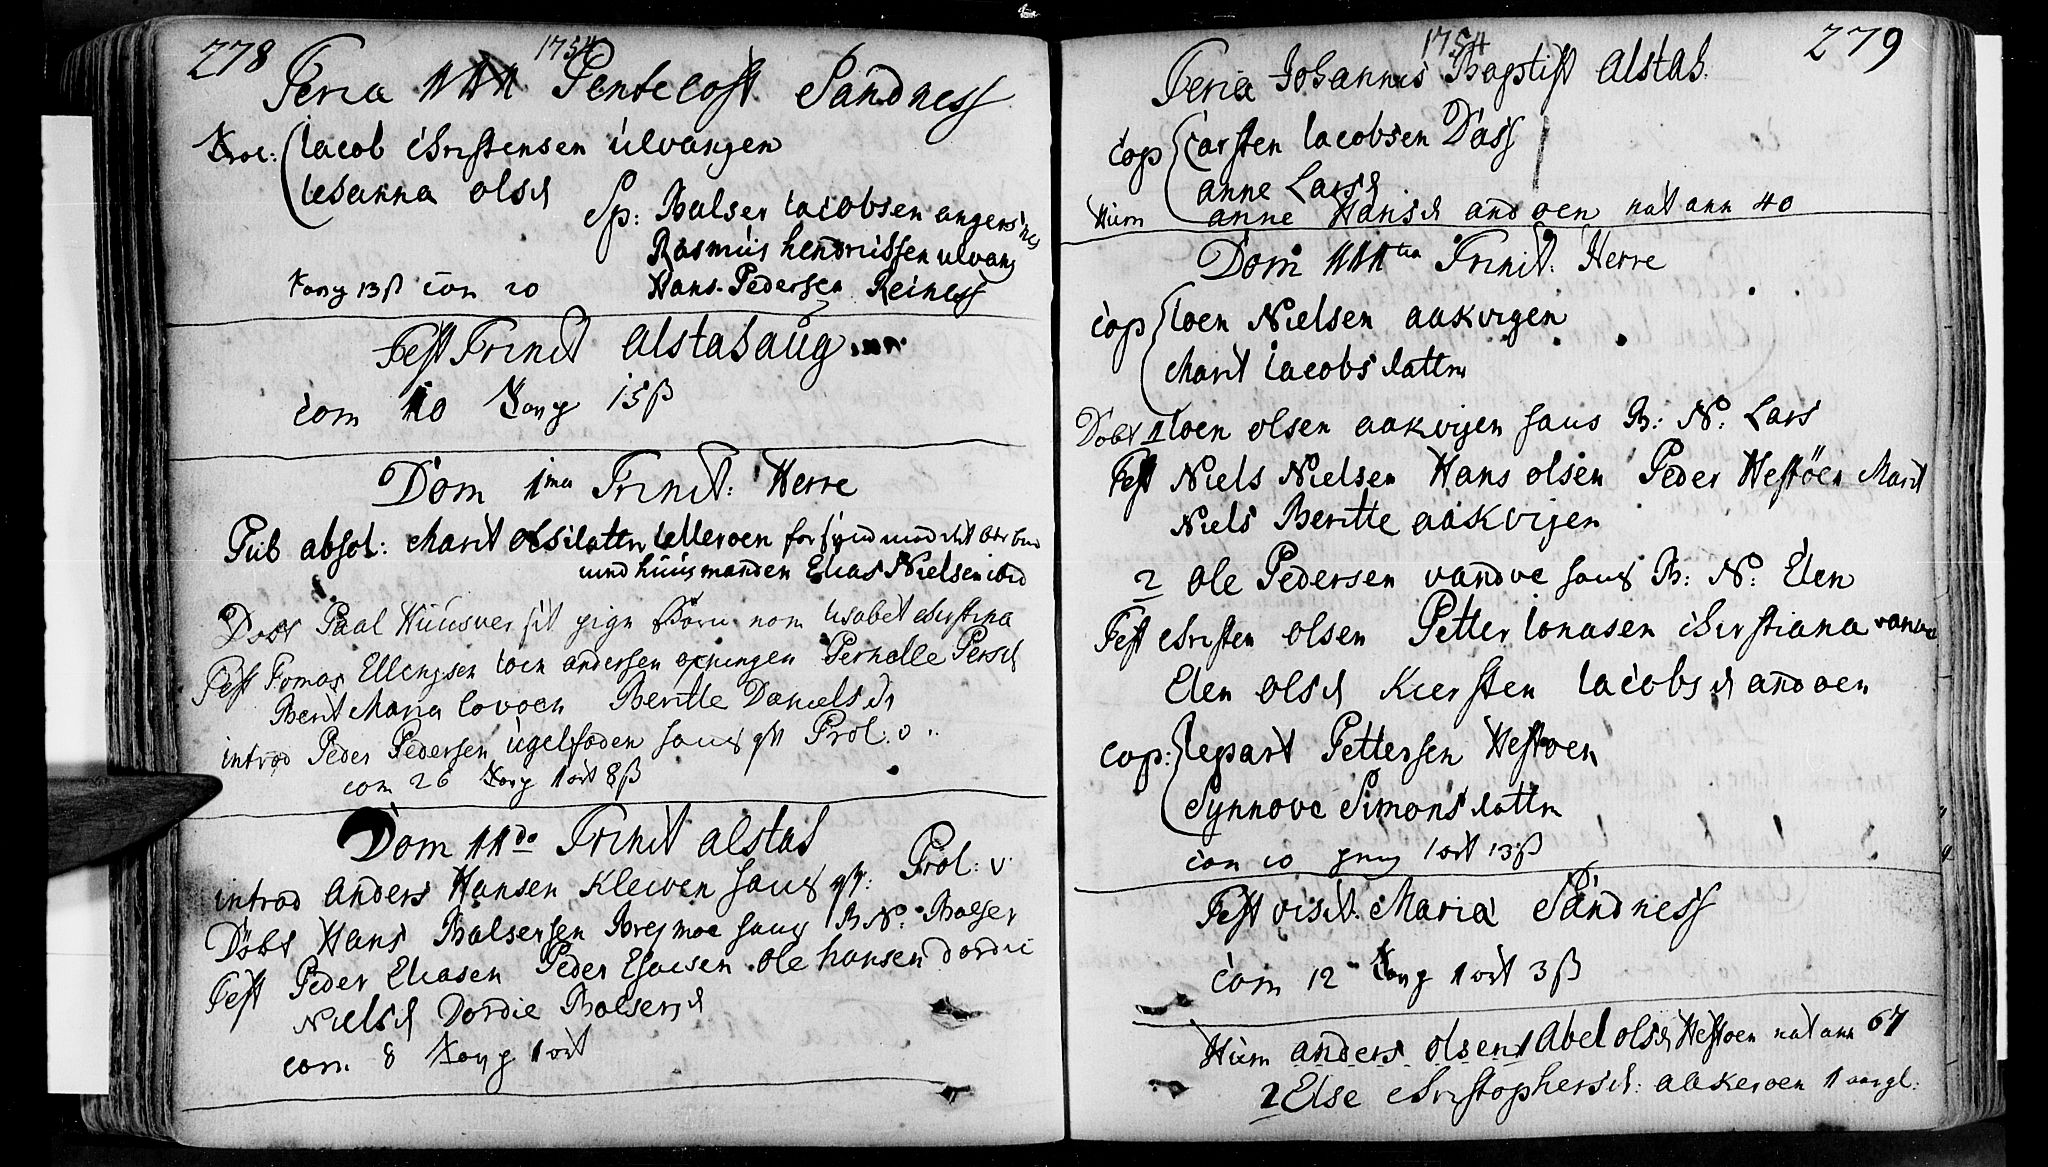 278
1754
Feria III Pentecost Sandness
Trol: Iacob Christensen Ulvangen
Lesanna Olsd
Sp: Balser Iacobsen angersnes
Rasmus Hendricssen ulvang
Tavg 13ß Com 20 Hans Pedersen Reiness
Fest Trinit Alstahaug
Com 10 Tavg 15ß
Dom 1ma Trinit: Herre
Pub absol: Marit Olsdattr Telleroen for
huusmanden Elias Nielsen ibid
Døbt Paal Huusver sit pige Barn nom Lisabet Chirstina
Fest Tomas Ellengsen Ioen Andersen Pernelle Persd
Berit Maria Lovoen Beritte Daniels dr
introd Peder Pedersen Ugelfoden hans qv Prol. v
com 26 Tavg 1 ort 8ß
Dom IIdo Trinit Alstah
introd Anders Hansen Kleiven hans qv: Prol: v
Døbt Hans Balsersen Breimoe hans B: N: Balser
Fest Peder Eliasen Peder Esaisen Ole Hansen Dordie
Nielsd Dordie Balsersd
com. 8 Tavg 1 ort
279
1754
Feria Iohannis Baptist Alstah:
Cop Carsten Iacobsen Dass
Anne Larsd
Hum Anne Hansd Andoen nat ann 40
Dom IIItia Trinit: Herre
Cop Ioen Nielsen Aakvigen
Marit Iacobsdattr
Døbt 1 Ioen Olsen Aakvigen hans B: N: Lars
Fest Niels Nielsen Hans Olsen Peder Hestöen Marit
Niels Beritte Aakvigen
2 Ole Pedersen Vandve hans B: N: Elen
Fest Christen Olsen Petter Ionasen Chirstiana Vandve
Elen Olsd Kiersten Iacobsd Andoen
Cop: Lepart Pettersen Hestoen
Synnove Simonsdattr
Com 10 1 ort 13ß
Fest visit: Maria Sandness
Com 12 Tavg 1 ort 3ß
Hum Anders Olsen 1 Abel Olsd Hestoen nat ann 67
2 Else Christophersd: Aakeroen 1 aar gl: